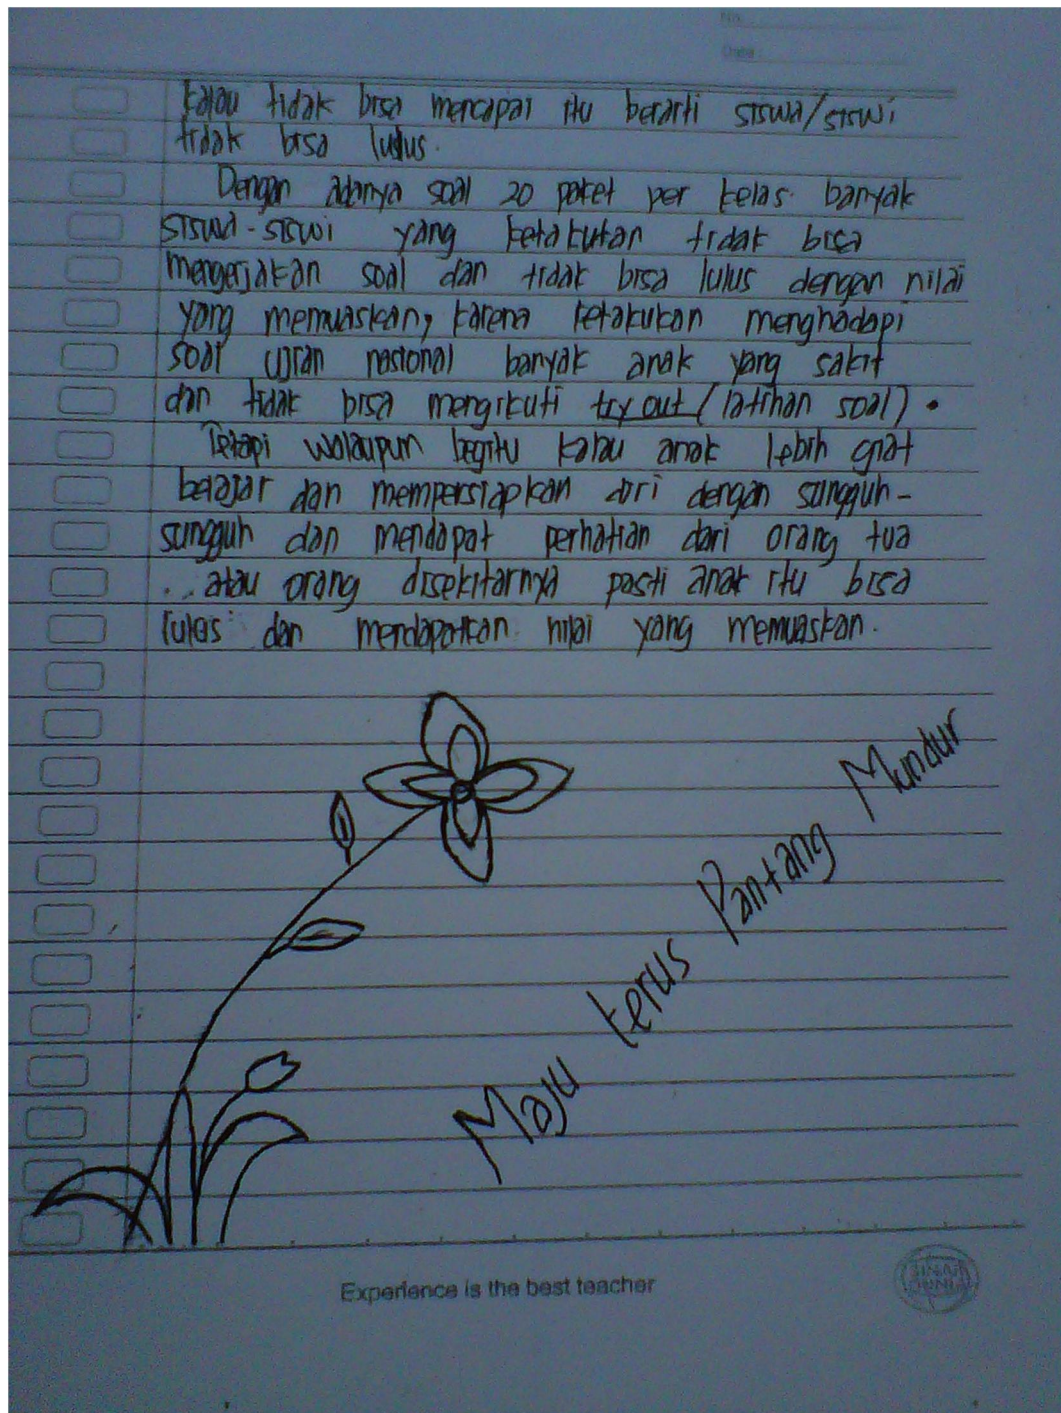 No.
Date :
kalau tidak bisa mencapai itu berarti siswa/siswi
tidak bisa lulus.
Dengan adanya soal 20 paket per kelas banyak
siswa-siswi yang ketakutan tidak bisa
mengerjakan soal dan tidak bisa lulus dengan nilai
yang memuaskan, karena ketakukan menghadapi
soal ujian nasional banyak anak yang sakit
dan tidak bisa mengikuti try out (latihan soal).
Tetapi walaupun begitu kalau anak lebih giat
belajar dan mempersiapkan diri dengan sungguh-
sungguh dan mendapat perhatian dari orang tua
atau orang disekitarnya pasti anak itu bisa
lulus dan mendapatkan nilai yang memuaskan.
Maju terus Pantang Mundur
Experience is the best teacher